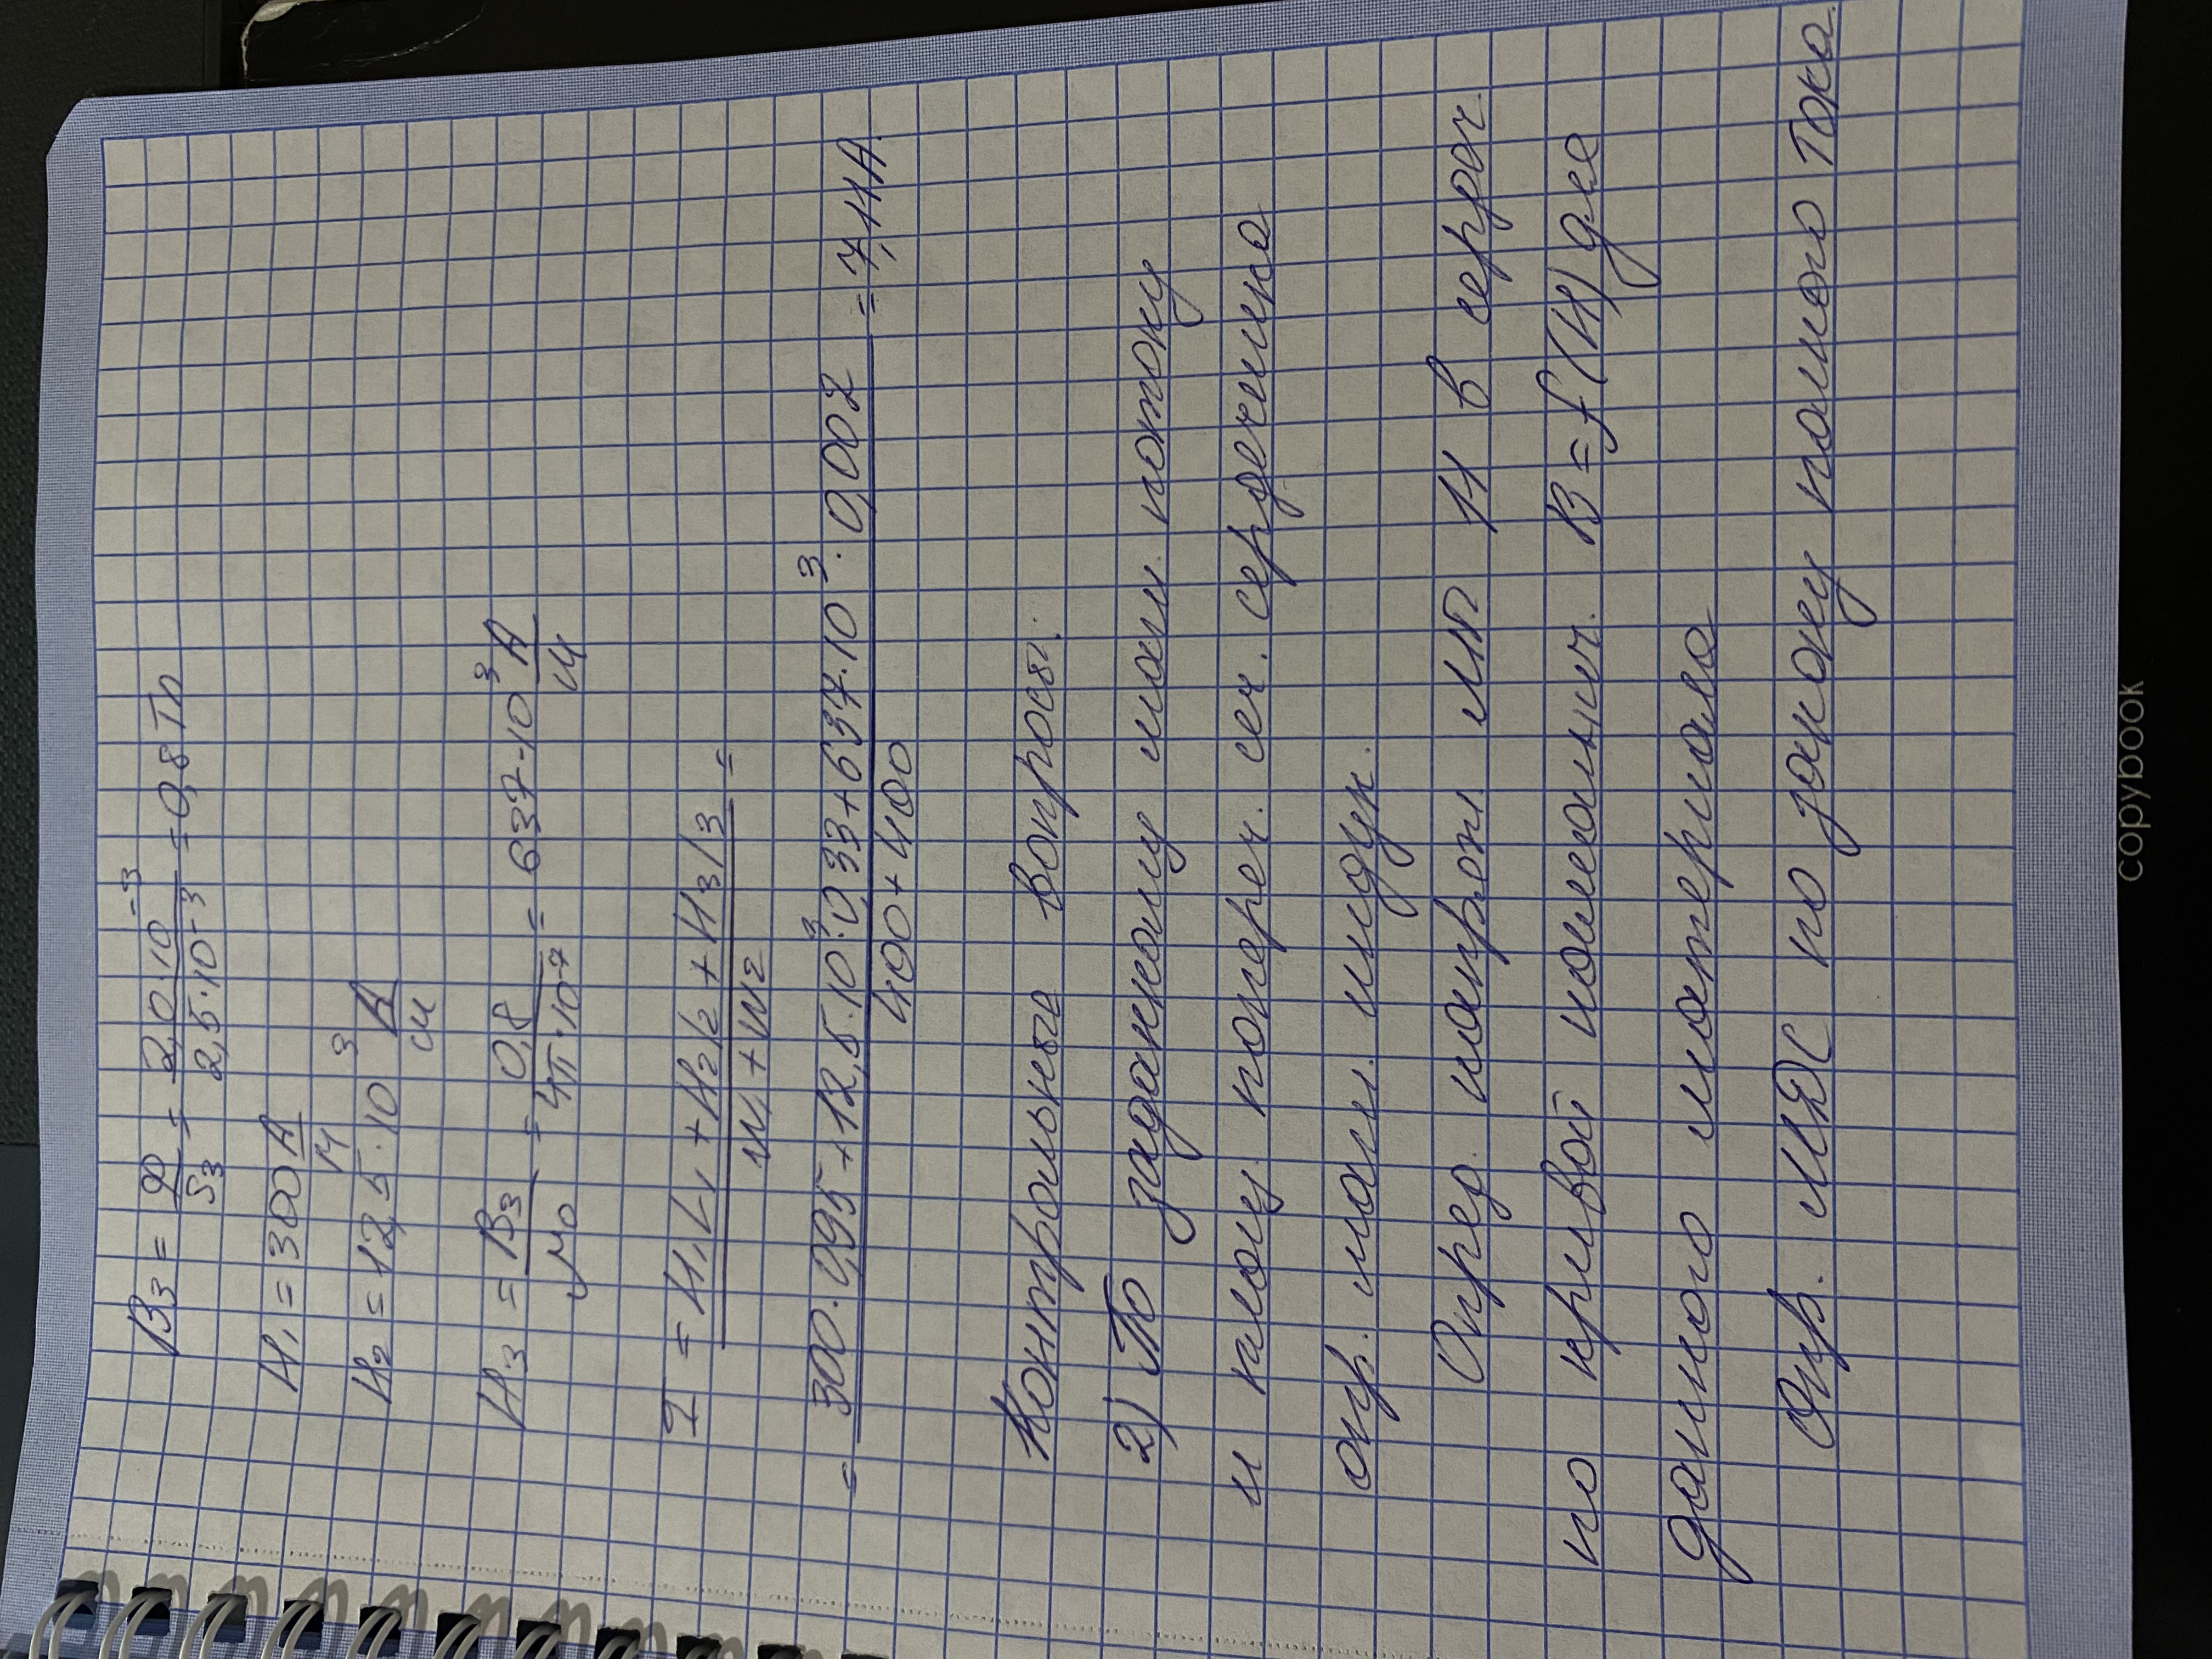 B₃ = Ф/S₃ = 2,0·10⁻³/2,5·10⁻³ = 0,8 Тл
H₁ = 300 А/м
H₂ = 12,5·10³ А/м
H₃ = B₃/μ₀ = 0,8/4π·10⁻⁷ = 637·10³ А/м
I = H₁L₁ + H₂l₂ + H₃l₃/W₁ + W₂ =
= 300·0,995 + 12,5·10³·0,033 + 637·10³·0,002/400 + 400 = 7,11А.
Контрольные вопросы:
2) По заданному магн. потоку
иналому попереч. сеч. сердечника
опр. магн. индук.
Опред. напряж МП H в сердч.
по кривой намагнич. B = f(H) для
данного материала
Опр. МДС по закону полного тока.
copybook